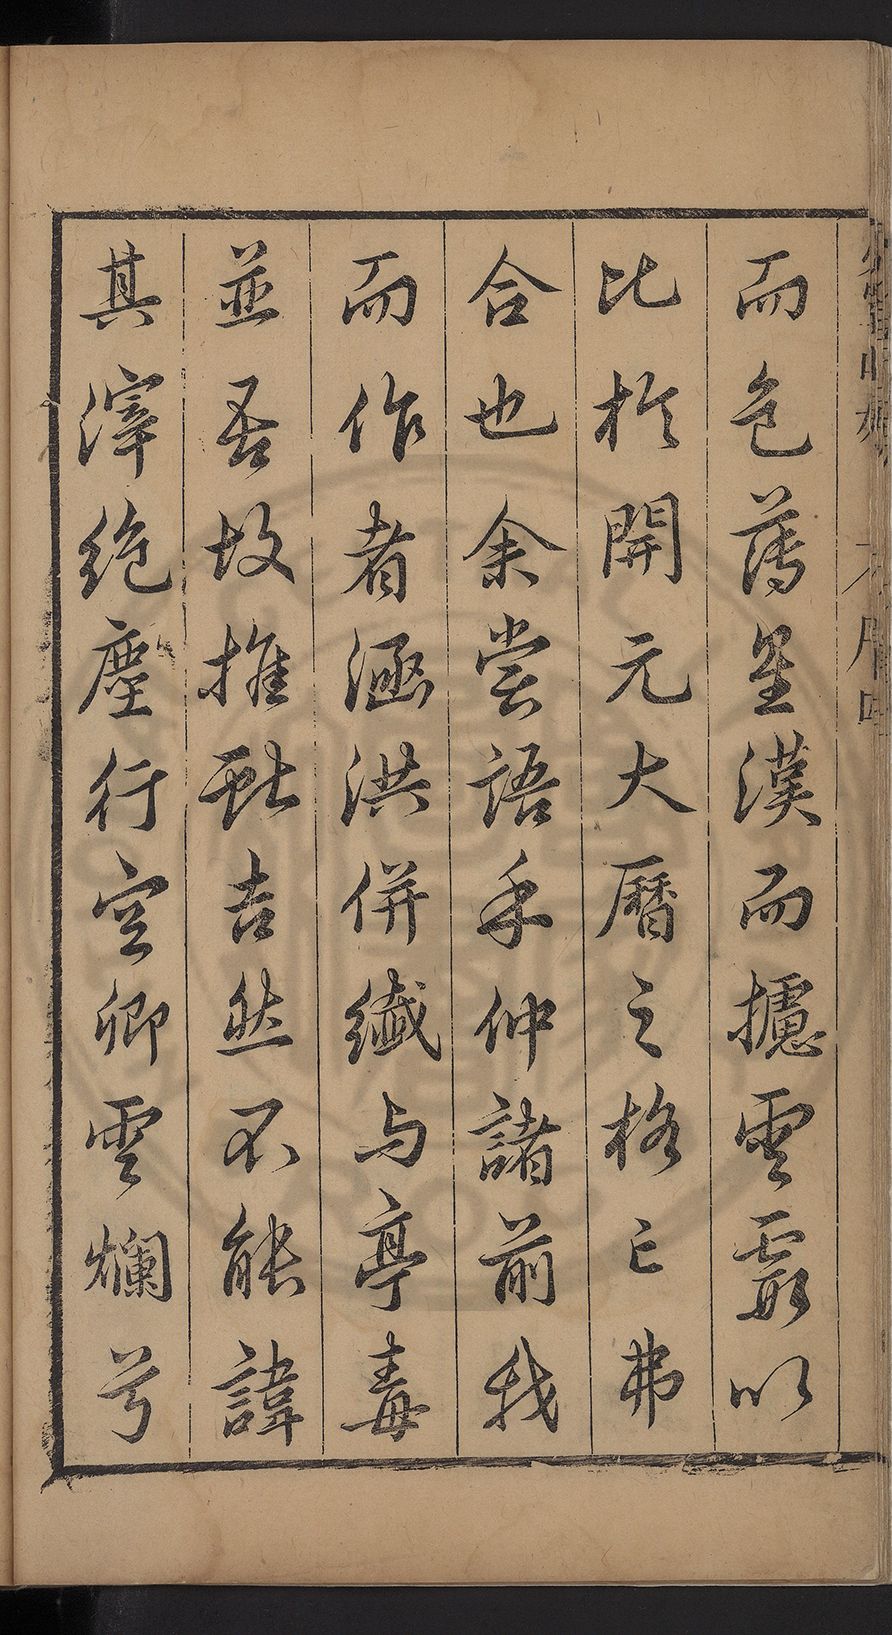 而色薄星漢而攄雲霞以
比於開元大曆之格亡弗
合也余嘗語乎仲諸前我
而作者涵洪併纖与亭毒
並吾故推獻吉然不能諱
其滓絶塵行空卿雲爛兮